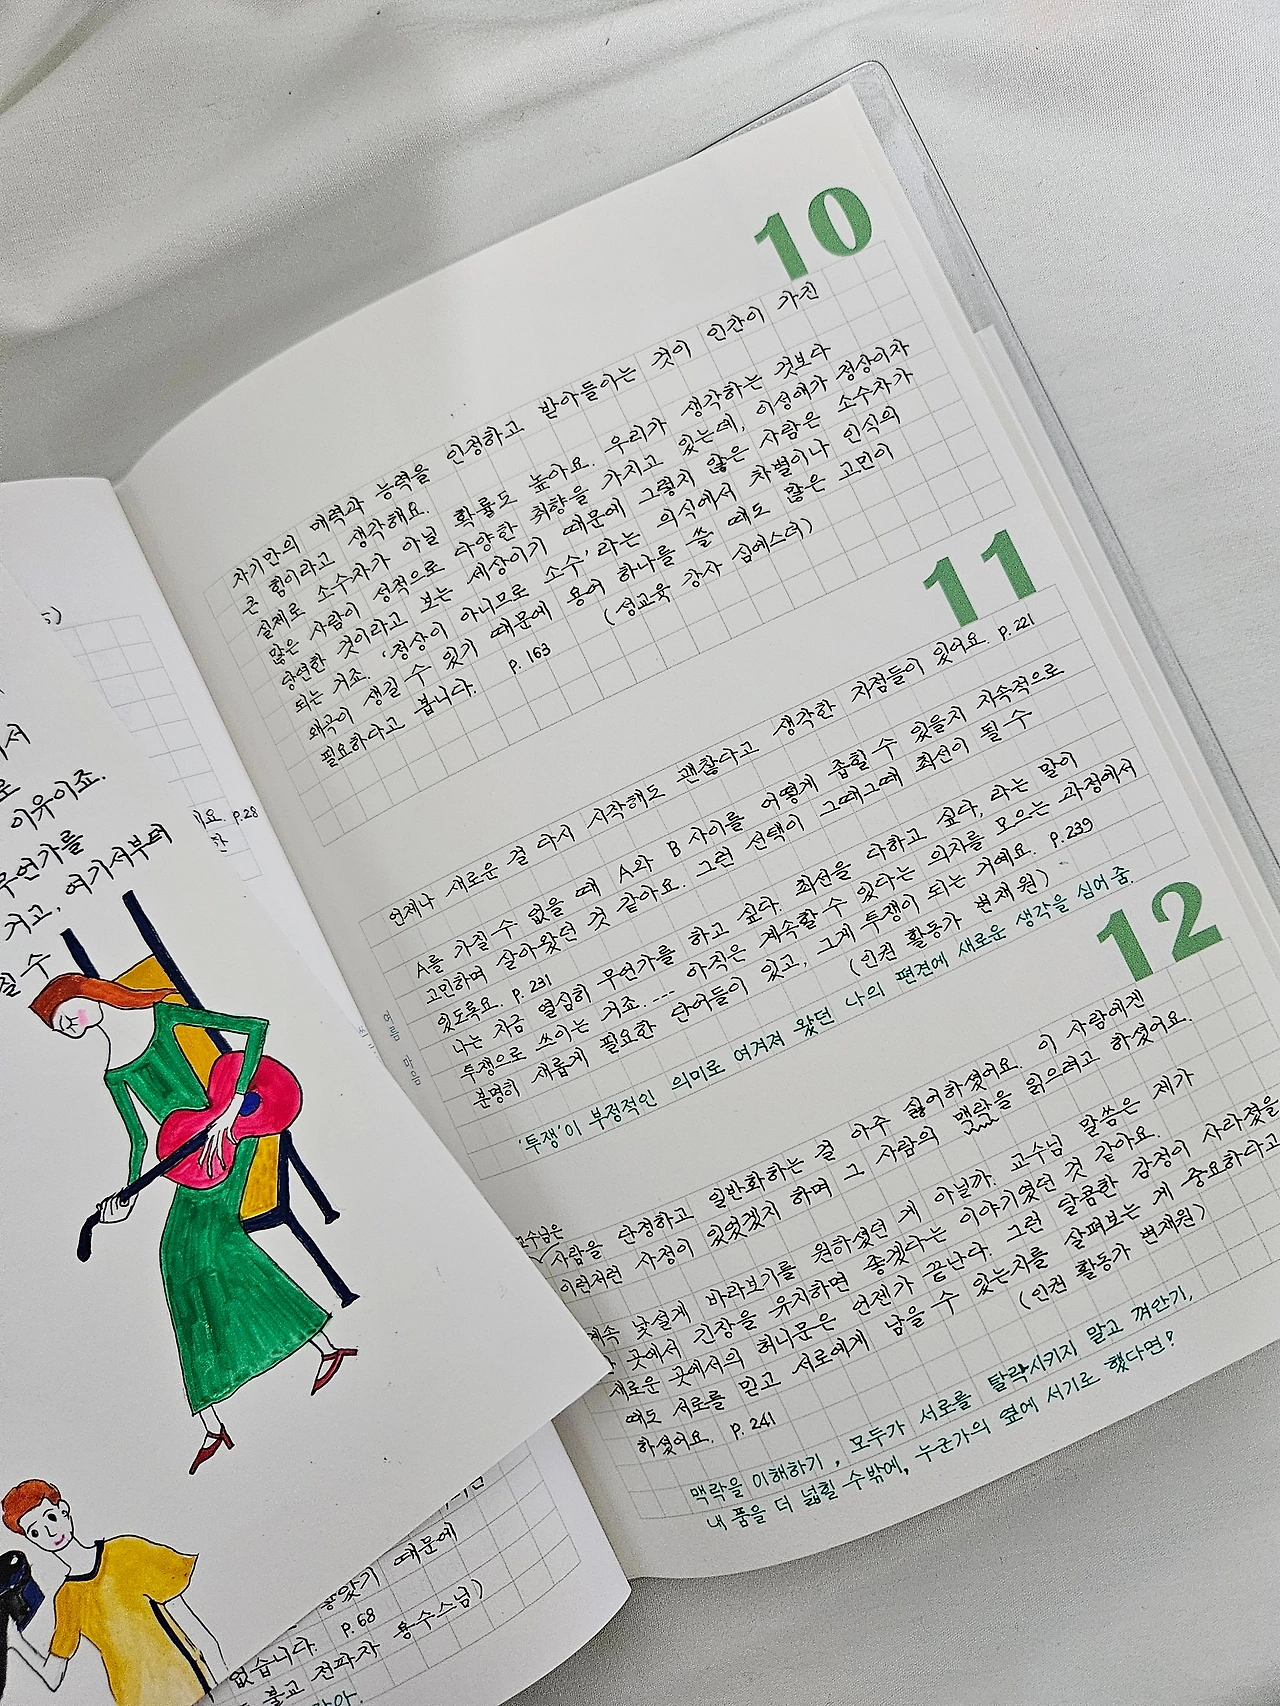 10
자기만의 매력과 능력을 인정하고 받아들이는 것이 인간이 가진
큰 힘이라고 생각해요.
실제로 소수자가 아닐 확률도 높아요. 우리가 생각하는 것보다
많은 사람이 성적으로 다양한 취향을 가지고 있는데, 이성애가 정상이자
당연한 것이라고 보는 세상이기 때문에 그렇지 않은 사람은 소수자가
되는 거죠. '정상이 아니므로 소수'라는 의식에서 차별이나 인식의
왜곡이 생길 수 있기 때문에 용어 하나를 쓸 때도 많은 고민이
필요하다고 봅니다. p.163 (성교육 강사 심에스더)
11
언제나 새로운 걸 다시 시작해도 괜찮다고 생각한 지점들이 있어요. p.221
A를 가질 수 없을 때 A와 B 사이를 어떻게 좁힐 수 있을지 지속적으로
고민하며 살아왔던 것 같아요. 그런 선택이 그때그때 최선이 될 수
있도록요. p.231
나는 지금 열심히 무언가를 하고 싶다. 최선을 다하고 싶다, 라는 말이
투쟁으로 쓰이는 거죠. --- 아직은 계속할 수 있다는 의지를 모으는 과정에서
분명히 새롭게 필요한 단어들이 있고, 그게 투쟁이 되는 거예요. p.239
(인권 활동가 변재원)
'투쟁'이 부정적인 의미로 여겨져 왔던 나의 편견에 새로운 생각을 심어 줌.
12
교수님은
사람을 단정하고 일반화하는 걸 아주 싫어하셨어요. 이 사람에겐
이런저런 사정이 있었겠지 하며 그 사람의 맥락을 읽으려고 하셨어요.
계속 낯설게 바라보기를 원하셨던 게 아닐까. 교수님 말씀은 제가
곳에서 긴장을 유지하면 좋겠다는 이야기였던 것 같아요.
새로운 곳에서의 허니문은 언젠가 끝난다. 그런 달콤한 감정이 사라졌을
때도 서로를 믿고 서로에게 남을 수 있는지를 살펴보는 게 중요하다고
하셨어요. p.241 (인권 활동가 변재원)
맥락을 이해하기, 모두가 서로를 탈락시키지 말고 껴안기,
내 품을 더 넓힐 수밖에, 누군가의 옆에 서기로 했다면!
이유이죠.
무언가를
거고, 여기서부터
질 수
p.28
때문에
없습니다. p.68
불교 전파자 용수스님)